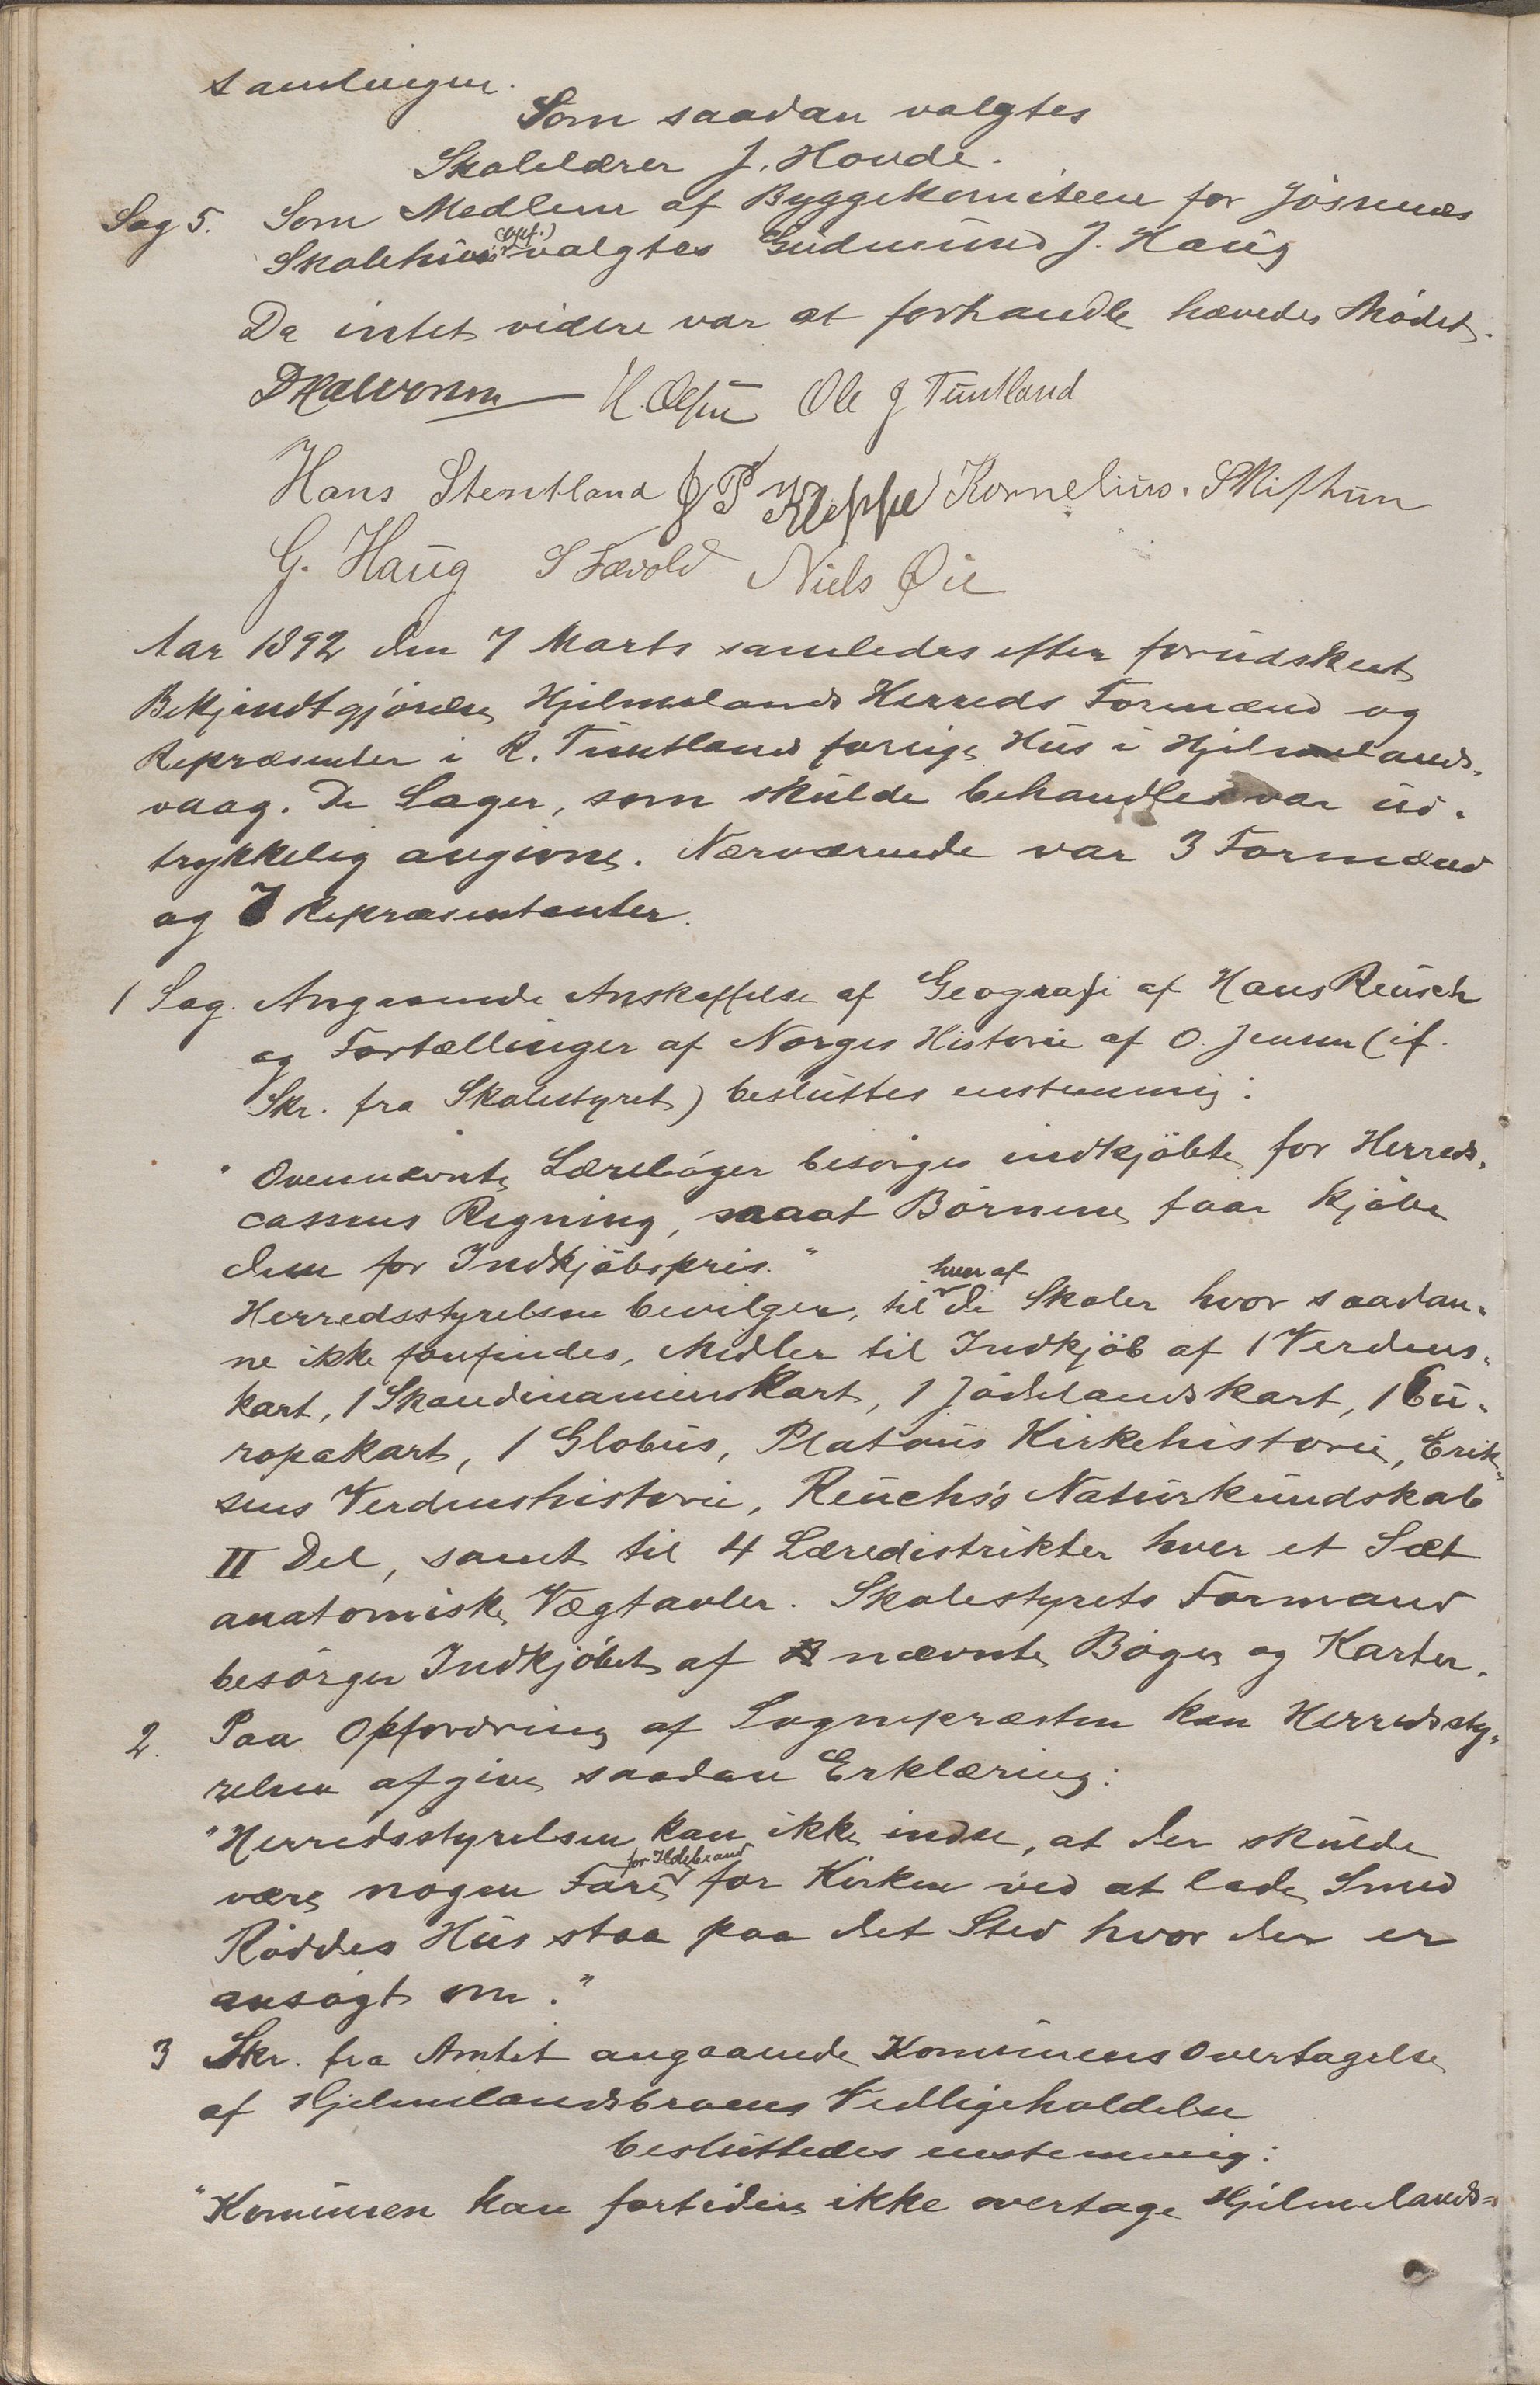 samlingen.
Som saadan valgtes
Skolelærer J. Houde.
Sag 5. Som Medlem af Byggekomiteen for Jøsenæs
Skolehuus valgtes Gudmund J. Haug
Da intet videre var at forhandle hævedes Mødet.
D Halvorsen H. Olsen Ole J Tuntland
Hans Stentland J P Kleppe Kornelius. Skifthun
G. Haug S Fævold Niels Øie
Aar 1892 den 7 Marts samledes efter forudskeet
Bekjendtgjørelse Hjelmelands Herreds Formænd og
Repræsenter i R. Tuntlands forrige Hus i Hjelmelands-
vaag. De Sager, som skulde behandles var ud-
trykkelig angivne. Nærværende var 3 Formænd
og 7 Repræsentanter.
1 Sag. Angaaende Anskaffelse af Geografi af Hans Reusch
og Fortællinger af Norges Historie af O. Jensen (if.
Skr. fra Skolestyret) besluttes enstemmig:
"Ovennævnte Lærebøger besørges indkjøbte for Herreds-
cassens Regning, saaat Børnene faar kjøbe
dem for Indkjøbspris."
Herredsstyrelsen bevilger, til hver af de Skoler hvor saadan-
ne ikke forfindes, Midler til Indkjøb af 1 Verdens-
kart, 1 Skandinavienskart, 1 Jødelandskart, 1 Eu-
ropakart, 1 Globus, Platous Kirkehistorie, Erik-
sens Verdenshistorie, Reuchs's Naturkundskab
II Del, samt til 4 Læredistrikter hver et Sæt
anatomiske Vægtavler. Skolestyrets Formand
besørger Indkjøbet af nævnte Bøger og Karter.
2. Paa Opfordring af Sognepræsten kan Herredssty-
relsen afgive saadan Erklæring:
"Herredsstyrelsen kan ikke indse, at der skulde
være nogen Fare for Ildebrand for Kirken ved at lade Smed
Røddes Hus staa paa det Sted hvor der er
ansøgt om."
3 Skr. fra Amtet angaaende Kommunens Overtagelse
af Hjelmelandsbroens Vedligeholdelse
besluttedes enstemmig:
"Kommunen kan fortiden ikke overtage Hjelmelands-